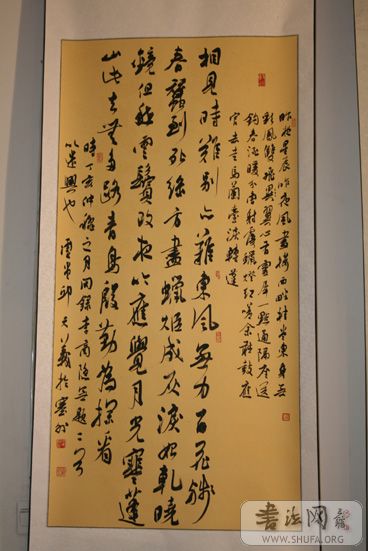 昨夜星辰昨夜風畫樓西畔桂堂東身無
彩鳳雙飛翼心有靈犀一點通隔座送
鉤春酒暖分曹射覆蠟燈紅嗟余聽鼓應
官去走馬蘭臺類轉蓬
相見時難別亦難東風無力百花殘
春蠶到死絲方盡蠟炬成灰淚始乾曉
鏡但愁雲鬢改夜吟應覺月光寒蓬
山此去無多路青鳥殷勤為探看
時丁亥仲秋之月 錄李商隱無題二首
以遣興也
书法网
WWW.SHUFA.ORG